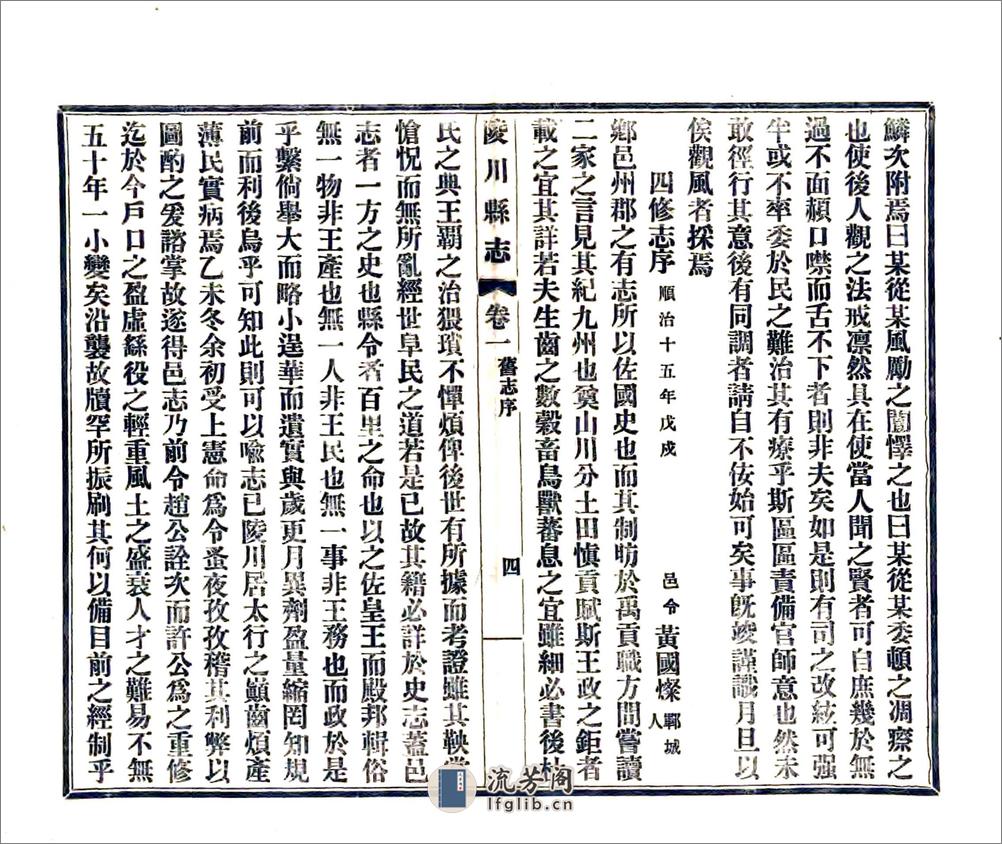 鱗次附焉曰某從某風勵之闡懌之也曰某從某委頓之凋瘵之
也使後人觀之法戒凛然具在使當人聞之賢者可自庶幾於無
過不面赬口噤而舌不下者則非夫矣如是則有司之改絃可强
半或不率委於民之難治其有療乎斯區區責備官師意也然未
敢徑行其意後有同調者請自不佞始可矣事旣竣謹識月旦以
俟觀風者採焉
四修志序 順治十五年戊戌 邑令黃國燦鄆城人
鄉邑州郡之有志所以佐國史也而其制昉於禹貢職方間嘗讀
二家之言見其紀九州也奠山川分土田愼貢賦斯王政之鉅者
載之宜其詳若夫生齒之數穀畜鳥獸蕃息之宜雖細必書後杜
陵川縣志 卷一 舊志序 四
氏之典王覇之治猥瑣不憚煩俾後世有所據而考證雖其鞅掌
愴怳而無所亂經世阜民之道若是已故其籍必詳於史志蓋邑
志者一方之史也縣令者百里之命也以之佐皇王而殿邦輯俗
無一物非王產也無一人非王民也無一事非王務也而政於是
乎繫倘舉大而略小逞華而遺實與歲更月異劑盈量縮罔知規
前而利後烏乎可知此則可以喩志已陵川居太行之巔齒煩產
薄民實病焉乙未冬余初受上憲命爲令蚤夜孜孜稽其利弊以
圖酌之爰諮掌故遂得邑志乃前令趙公詮次而許公爲之重修
迄於今戶口之盈虛繇役之輕重風土之盛衰人才之難易不無
五十年一小變矣沿襲故牘罕所振刷其何以備目前之經制乎
流芳閣
lfglib.cn